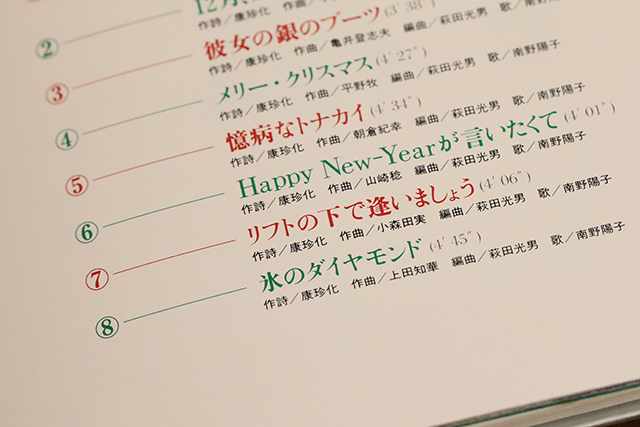 ② 12月、
作詩／康珍化
③ 彼女の銀のブーツ (3′38″)
作詩／康珍化 作曲／亀井登志夫 編曲／萩田光男 歌／南野陽子
④ メリー・クリスマス (4′27″)
作詩／康珍化 作曲／平野牧 編曲／萩田光男 歌／南野陽子
⑤ 憶病なトナカイ (4′34″)
作詩／康珍化 作曲／朝倉紀幸 編曲／萩田光男 歌／南野陽子
⑥ Happy New-Yearが言いたくて (4′01″)
作詩／康珍化 作曲／山崎稔 編曲／萩田光男 歌／南野陽子
⑦ リフトの下で逢いましょう (4′06″)
作詩／康珍化 作曲／小森田実 編曲／萩田光男 歌／南野陽子
⑧ 氷のダイヤモンド (4′45″)
作詩／康珍化 作曲／上田知華 編曲／萩田光男 歌／南野陽子